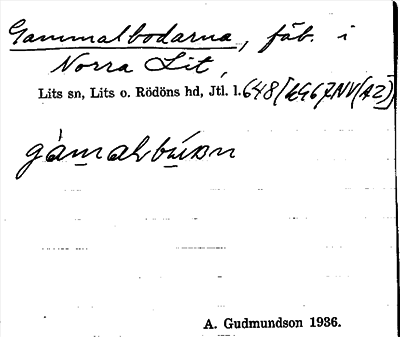 Gammalbodarna, fäb. i
Norra Lit,
Lits sn, Lits o. Rödöns hd, Jtl. l. 648
gàmalbúɒn
A. Gudmundson 1936.